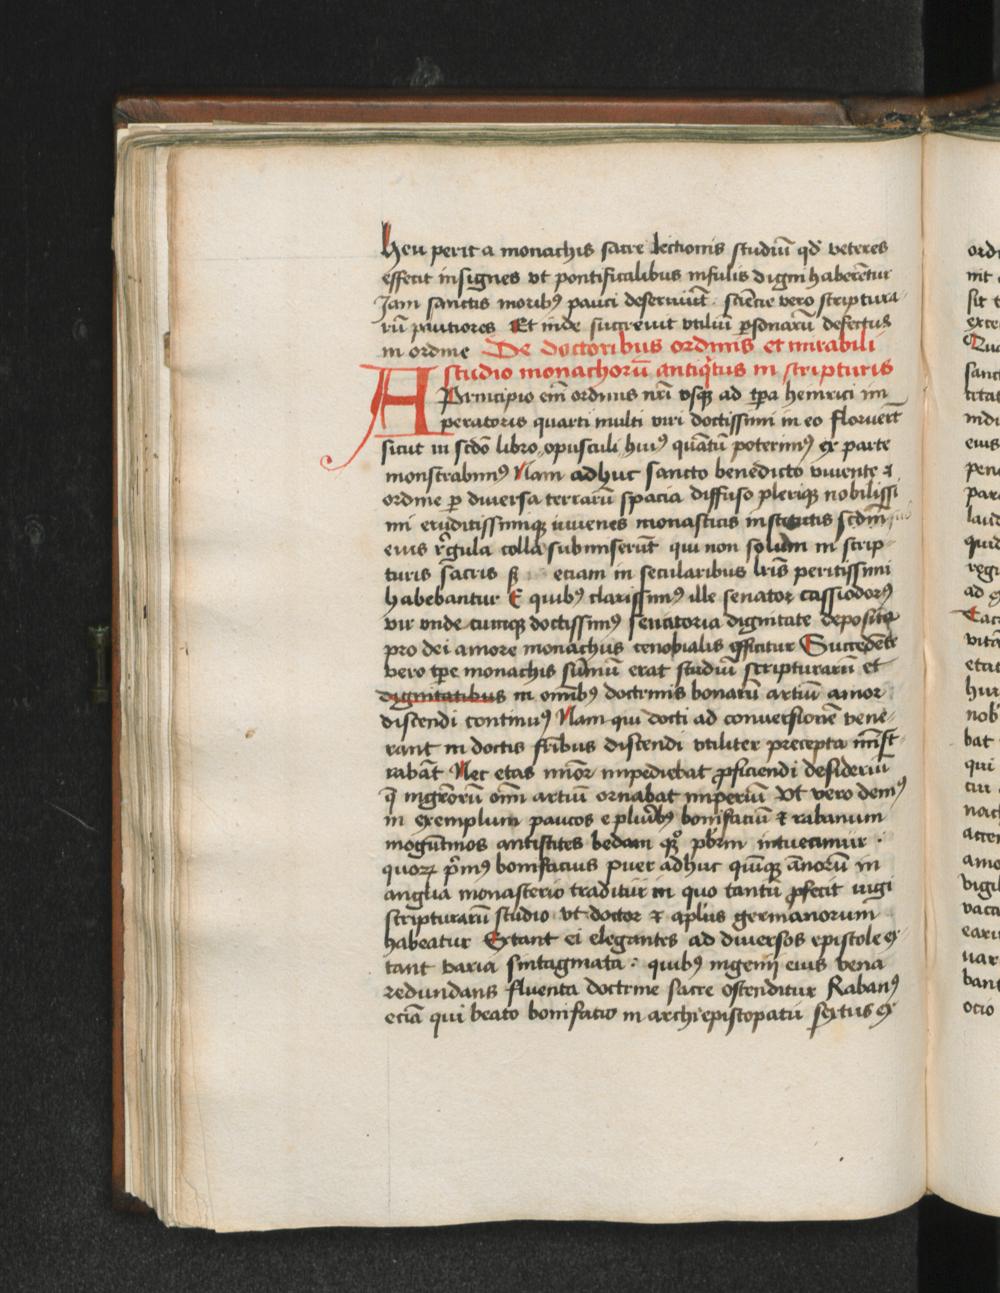 heu perit a monachis sacre lectionis studiū qd veteres
effecit insignes vt pontificalibus infulis digni haberētur
Jam sanctis moribꝰ pauci deserviūt. sciēcie vero scriptura-
rū pautiores Et inde succrevit vtiliū ꝑsonarū defectus
in ordine De doctoribus ordinis et mirabili
studio monachorū antiqͥtus in scripturis
A Principio em̄ ordinis nr̄i vsqꝫ ad tp̄a heinrici im
peratoris quarti multi viri doctissimi in eo floruer̄t
sicut in scd̄o libro opusculi huiꝰ quātū poterimꝰ ex parte
monstrabimꝰ Nam adhuc sancto benedicto vivente ⁊
ordine ꝑ diversa terrarū spacia diffuso pleriqꝫ nobilissi
mi eruditissimiqꝫ iuvenes monasticis institutis scdm̄
eius rͬgula colla submiserūt qui non solum in scrip-
turis sacris etiam in secularibus lr̄is peritissimi
habebantur E quibꝰ clarissimꝰ ille senator cassiodorꝰ
vir vnde cumqꝫ doctissimꝰ senatoria dignitate deposita
pro dei amore monachus cenobialis efficitur Succedēte
vero tp̄e monachis sūmū erat studiū scripturarū et
dignitatibus in omībꝰ doctrinis bonarū artiū amor
discendi continuꝰ Nam qui docti ad conversionē vene-
rant in doctis fr̄ibus discendi vtiliter precepta mīst-
rabāt Nec etas minor impediebat ꝓficiendi desideriū
q̄ ingeniorū om̄i artiū ornabat imperiū Vt vero demꝰ
in exemplum paucos e pluribꝰ bonifaciū ⁊ rabanum
mogūtinos antistites bedam qꝫ pbr̄m intueamur.
quoꝝ pͥmꝰ bonifacius puer adhuc quīqꝫ ānorū in
anglia monasterio traditur in quo tantū ꝓfecit iugi
scripturarū studio vt doctor ⁊ apl̄us germanorum
habeatur Extant ei elegantes ad diversos epistole ex-
tant varia sintagmata: quibꝰ ingenij eius vena
redundans fluenta doctrine sacre ostenditur Rabanꝰ
eciā qui beato bonifatio in archiepiscopatu sextus ex